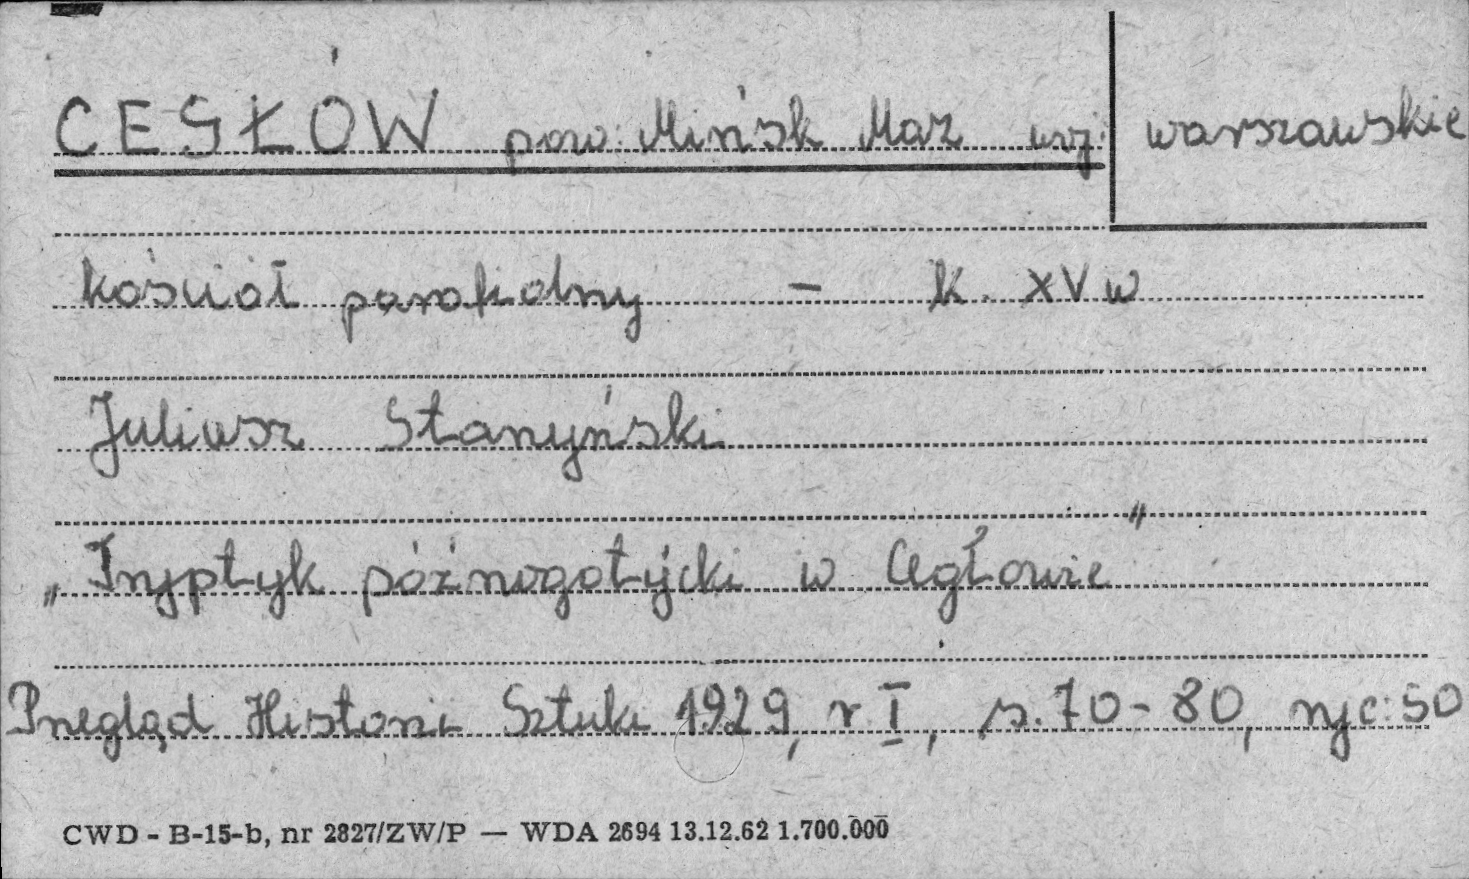 CEGŁÓW pow. Mińsk Maz woj. warszawskie
kościół parafialny - K. XV w
Juliusz Starzyński
„Tryptyk późnogotycki w Cegłowie"
Przegląd Historii Sztuki 1929, r I, s. 70-80, ryc: 50
CWD - B-15-b, nr 2827/ZW/P — WDA 2694 13.12.62 1.700.000